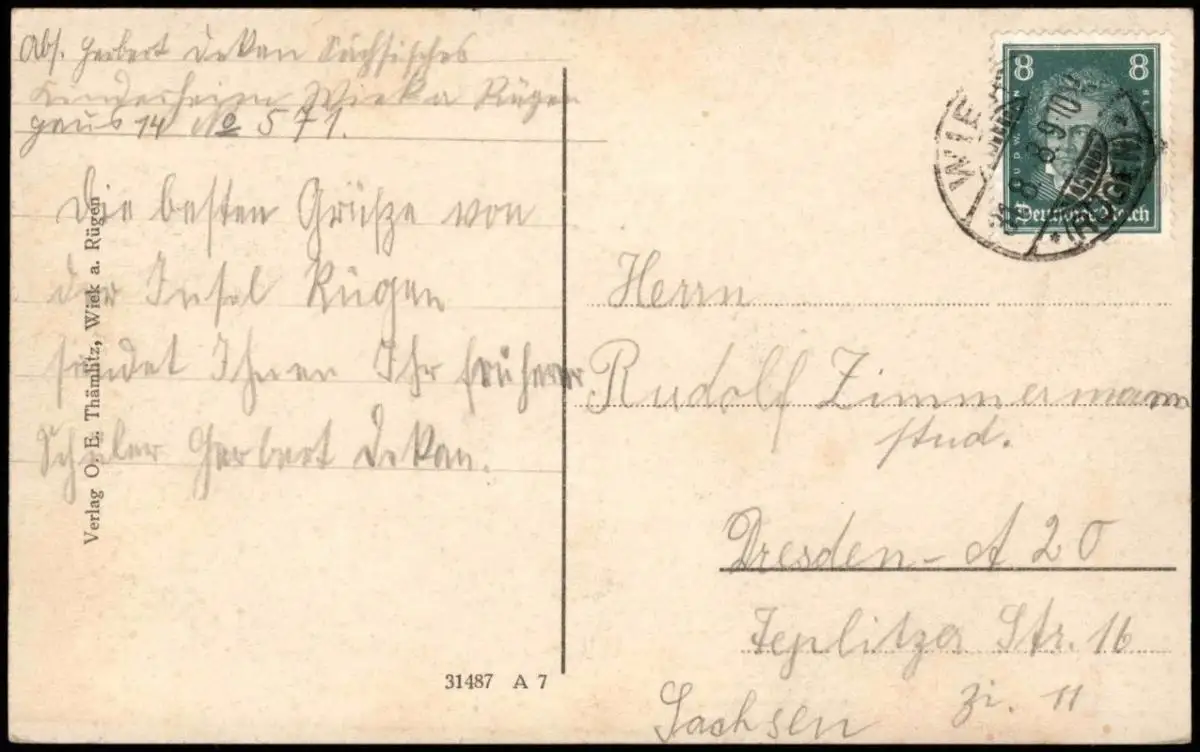 Abs. Herbert Dekan Sächsisches
Kinderheim Wieka Rügen
Haus 14 No 571.
Die besten Grüsze von
der Insel Rügen
sendet Ihnen Ihr früherer
Schüler Herbert Dekan.
Verlag O. E. Thämlitz, Wiek a. Rügen
31487 A 7
8 8
LUDWIG VAN BEETHOVEN
Deutsches Reich
WIEK
8.8 9-10V
* (RÜGEN) *
Herrn
Rudolf Zimmermann
stud.
Dresden-A 20
Teplitzer Str. 16
Zi. 11
Sachsen